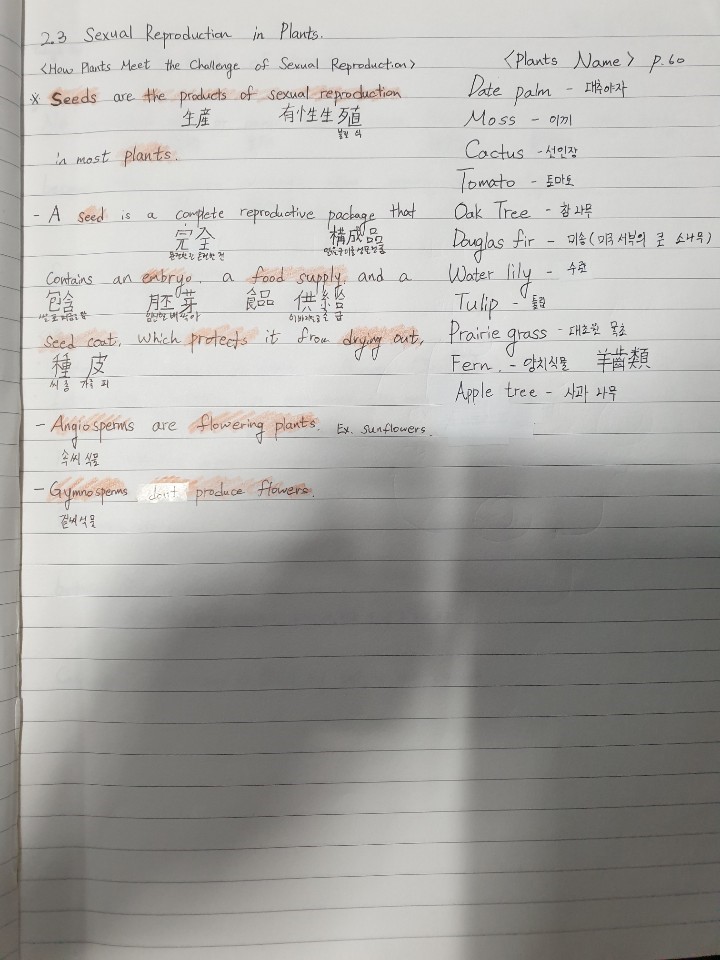 2.3 Sexual Reproduction in Plants.
<How Plants Meet the Challenge of Sexual Reproduction>
※ Seeds are the products of sexual reproduction
生産 有性生殖
불릴 식
in most plants.
- A seed is a complete reproductive package that
完全 構成品
contains an embryo, a food supply, and a
包含 胚芽 食品 供給
seed coat, which protects it from drying out,
種 皮
씨 종 가죽 피
- Angiosperms are flowering plants. Ex. sunflowers.
속씨 식물
- Gymnosperms don't produce flowers.
겉씨식물
<Plants Name> p.60
Date palm - 대추야자
Moss - 이끼
Cactus - 선인장
Tomato - 토마토
Oak Tree - 참나무
Douglas fir - 미송 (미국 서부의 큰 소나무)
Water lily - 수련
Tulip - 튤립
Prairie grass - 대초원 목초
Fern. - 양치식물 羊齒類
Apple tree - 사과 나무